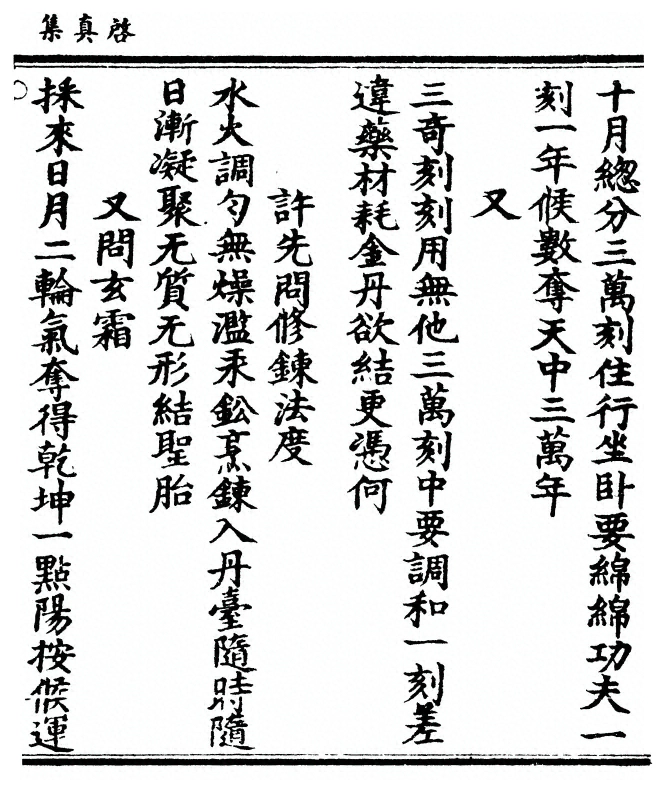 啓真集
十月緫分三萬刻住行坐卧要綿綿功夫一
刻一年候數奪天中三萬年
又
三奇刻刻用無他三萬刻中要調和一刻差
違藥材耗金丹欲結更憑何
許先問修鍊法度
水火調勻無燥濫汞鈆烹鍊入丹臺隨時隨
日漸凝聚无質无形結聖胎
又問玄霜
採來日月二輪氣奪得乾坤一點陽按候運